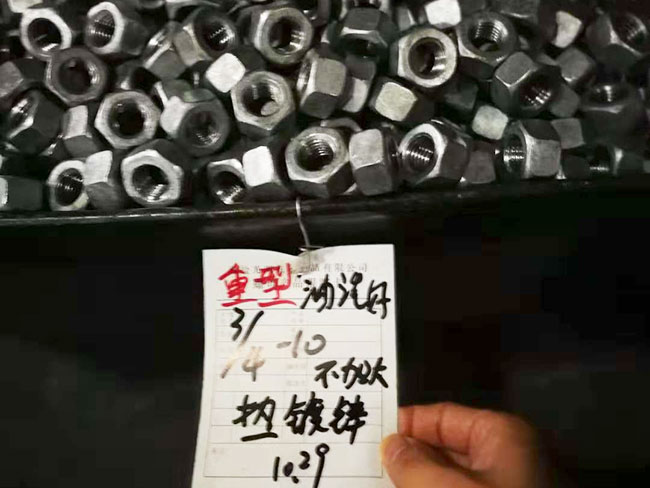 有限公司
重型 油浸好
3/4 -10
不加大
热镀锌
10.29